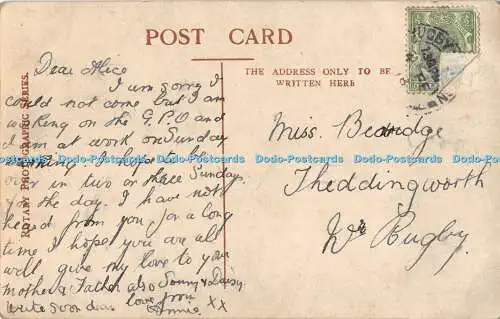 POST CARD
Dear Alice
I am sorry I
could not come but I am
working on the G.P.O and
I am at work on Sunday
hope to be
over in two or three Sundays
for the day. I have not
heard from you for a long
time I hope you are all
well give my love to your
mother & Father also Sonny & Daisy
write soon dear love from
Annie XX
ROTARY PHOTOGRAPHIC SERIES.
THE ADDRESS ONLY TO BE
WRITTEN HERE
Miss. Bedridge
Theddingworth
Nr Rugby
RUGBY
Dodo-Postcards Dodo-Postcards Dodo-Postcards Dodo-Postcards Dodo-Postcards